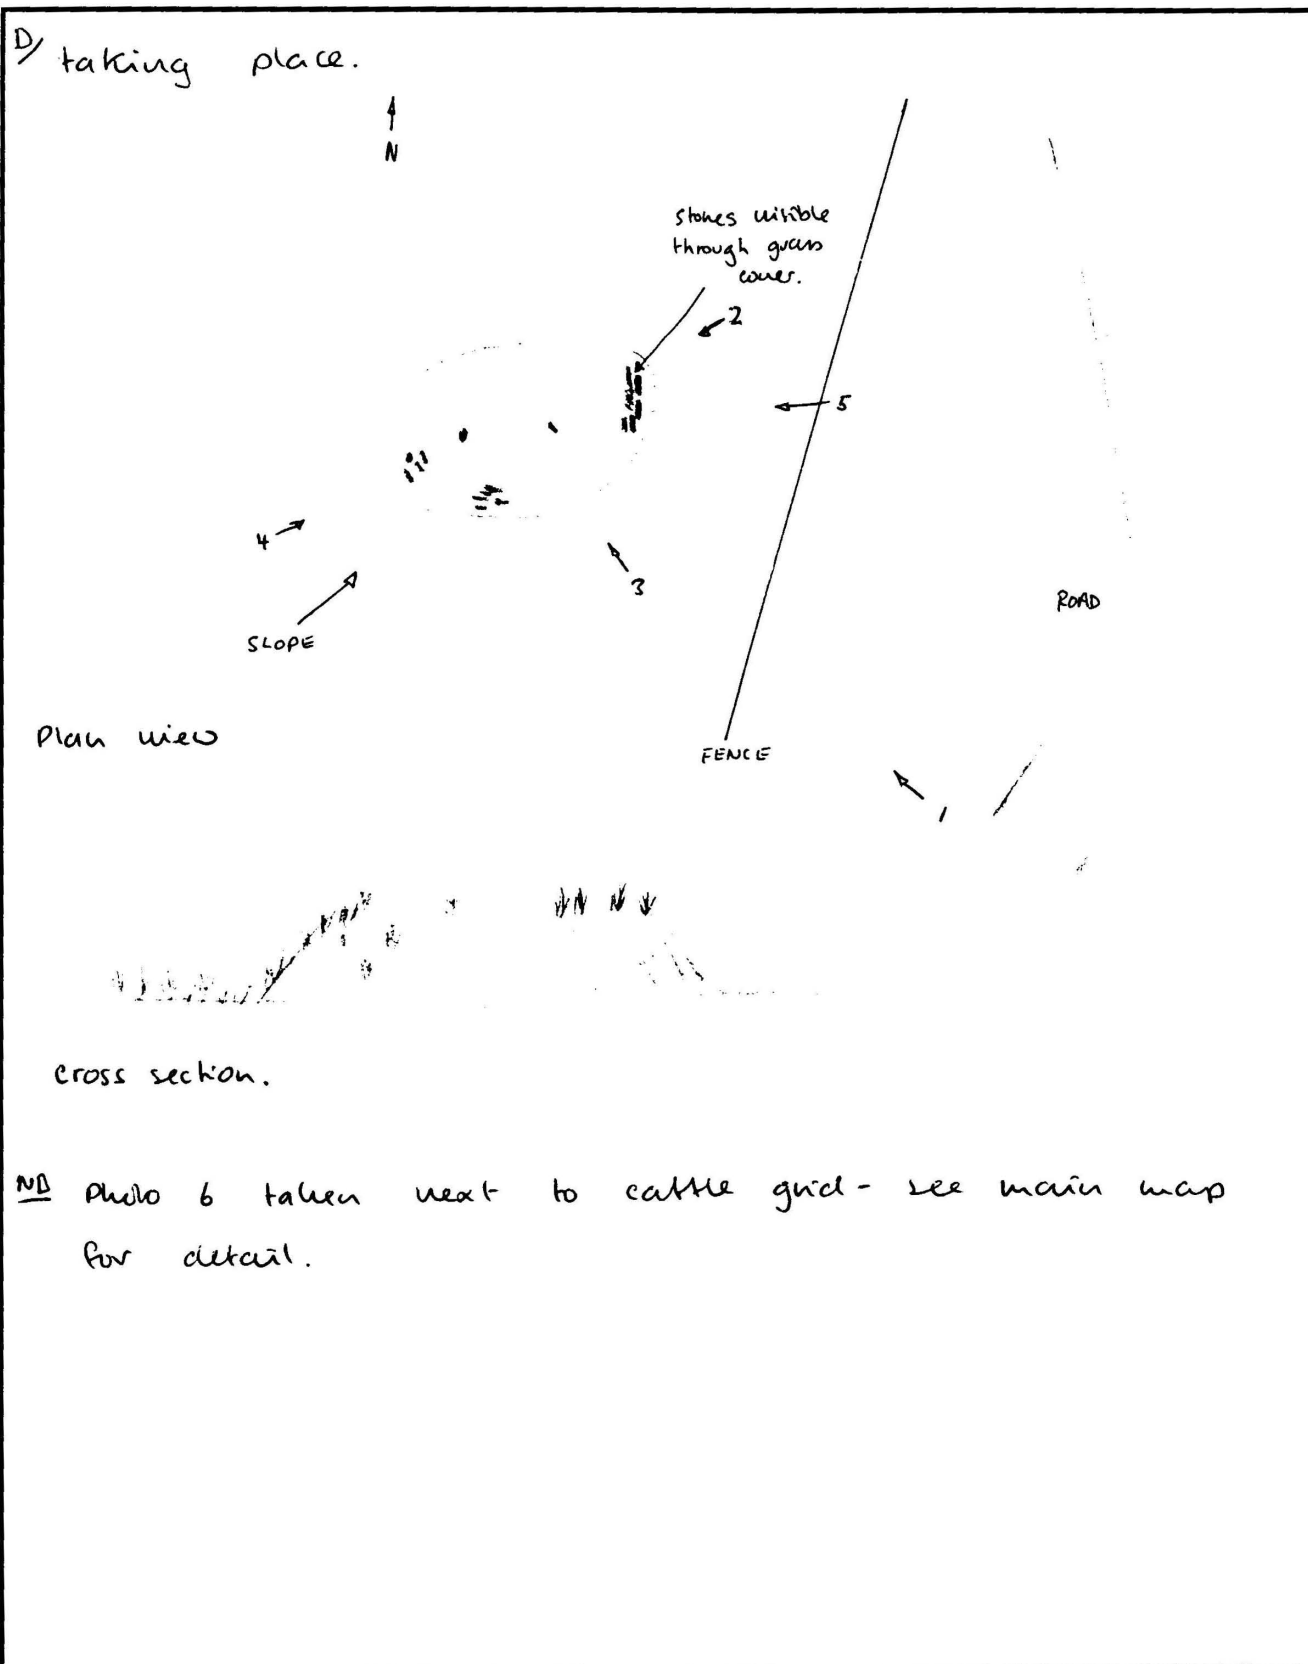 D/ taking place.
N
stones visible
through grass
cover.
2
5
4
3
SLOPE
ROAD
Plan view
FENCE
1
cross section.
NB Photo 6 taken next to cattle grid - see main map
for detail.